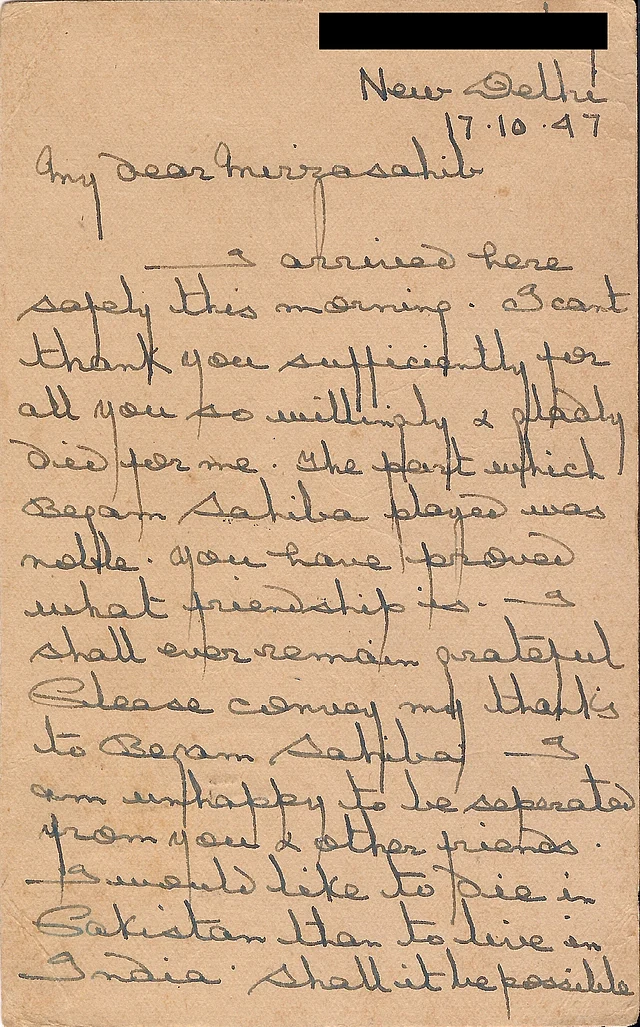 New Delhi
17.10.47
My dear Mirzasahib
I arrived here
safely this morning. I cant
thank you sufficiently for
all you so willingly & gladly
died for me. The part which
Begam Sahiba played was
noble. You have proved
what friendship is. I
shall ever remain grateful
Please convey my thanks
to Begam Sahiba I
am unhappy to be seperated
from you & other friends.
I would like to die in
Pakistan than to live in
India. Shall it be possible